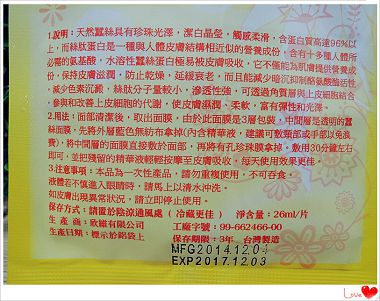 1.說明：天然蠶絲具有珍珠光澤，潔白晶瑩，觸感柔滑，含蛋白質高達96%以
上，而絲肽蛋白是一種與人體皮膚結構相近似的營養成份，含有十多種人體所
必需的氨基酸，水溶性蠶絲蛋白極易被皮膚吸收，它不僅能為肌膚提供營養成
份，保持皮膚滋潤，防止乾燥，延緩衰老，而且能減少暗沉抑制酪氨酸酶活性
，減少色素沉澱，絲肽分子量較小，滲透性強，可透過角質層與上皮細胞結合
，參與和改善上皮細胞的代謝，使皮膚濕潤、柔軟，富有彈性和光澤。
2.用法：面部清潔後，取出面膜，由於此面膜是3層包裝，中間層是透明的蠶
絲面膜，先將外層藍色無紡布拿掉(內含精華液，建議可敷頸部或手部以免浪
費)，將中間層的面膜直接敷於面部，再將有孔珍珠膜拿掉。敷用30分鐘左右
即可，並把殘留的精華液輕輕按摩至皮膚吸收，每天使用效果更佳。
3.注意事項：本品為一次性產品，請勿重複使用，不可吞食。
液體若不慎進入眼睛時，請馬上以清水沖洗。
如皮膚出現異常狀況，請立即停止使用。
保存方式：請置於陰涼通風處（冷藏更佳） 淨含量：26ml/片
生 產 商：欣鑶有限公司 工廠字號：99-662466-00
生產日期：標示於鋁袋上 保存期限：3年 台灣製造
MFG2014.12.04
EXP2017.12.03
Love